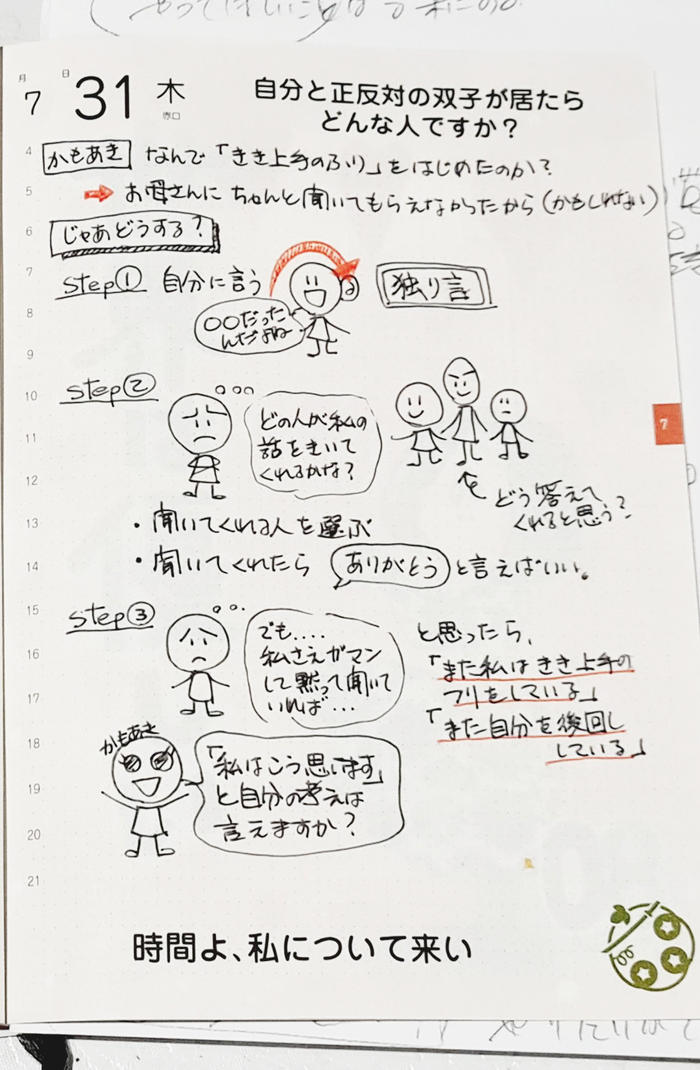 月 日
7 31 木
赤口
自分と正反対の双子が居たら
どんな人ですか?
4
かもあき なんで「きき上手のふり」をはじめたのか?
5
➡ お母さんにちゃんと聞いてもらえなかったから(かもしれない)
6
じゃあどうする?
7
step① 自分に言う
独り言
8
〇〇だった
んだよね
9
10
step②
どの人が私の
話をきいて
くれるかな?
11
12
どう答えて
くれると思う?
13
・聞いてくれる人を選ぶ
14
・聞いてくれたら ありがとう と言えばいい。
15
step③
でも....
私さえガマン
して黙って聞いて
いれば...
16
17
と思ったら、
「また私はきき上手の
フリをしている」
「また自分を後回し
している」
18
かもあき
19
「私はこう思います」
と自分の考えは
言えますか?
20
21
7
時間よ、私について来い